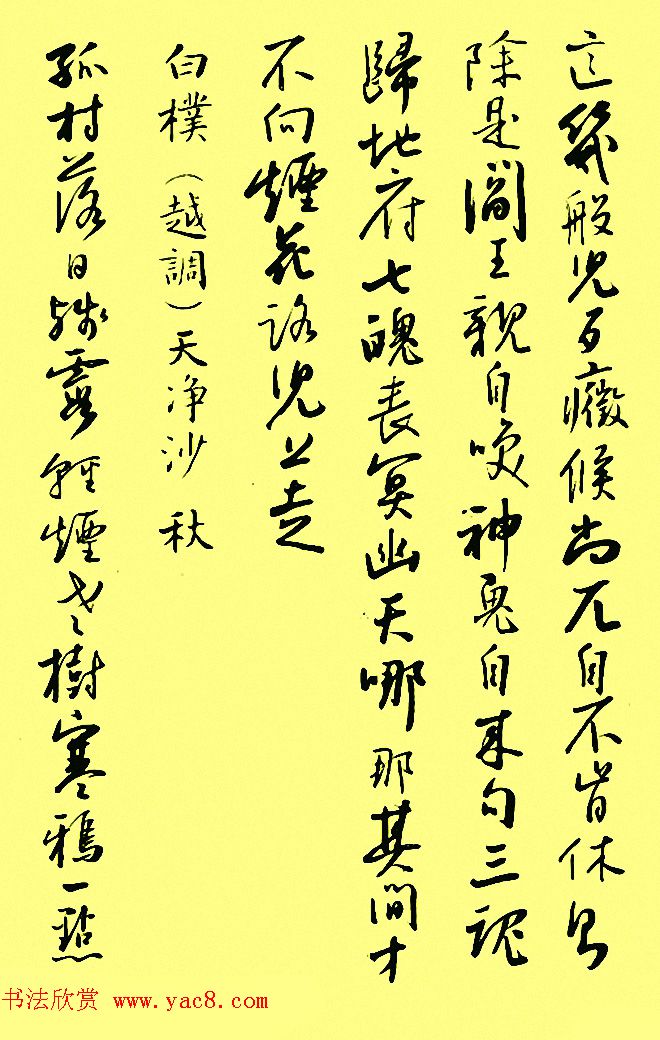 這幾般兒歹癥候尚兀自不肯休則
除是閻王親自喚神鬼自來勾三魂
歸地府七魄喪冥幽天哪那其間才
不向煙花路兒上走
白樸（越調）天净沙 秋
孤村落日殘霞輕煙老樹寒鴉一點
书法欣赏 www.yac8.com